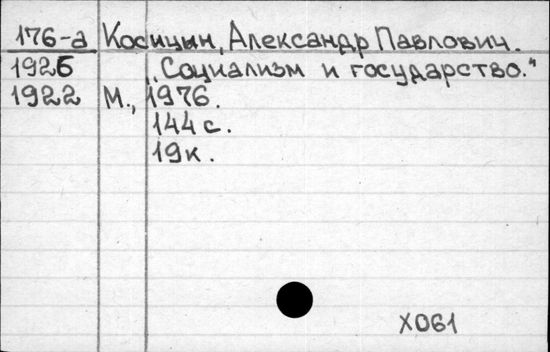 176-а Косицын, Александр Павлович.
1925 „Социализм и государство."
1922 М., 1976.
144 с.
19к.
X061